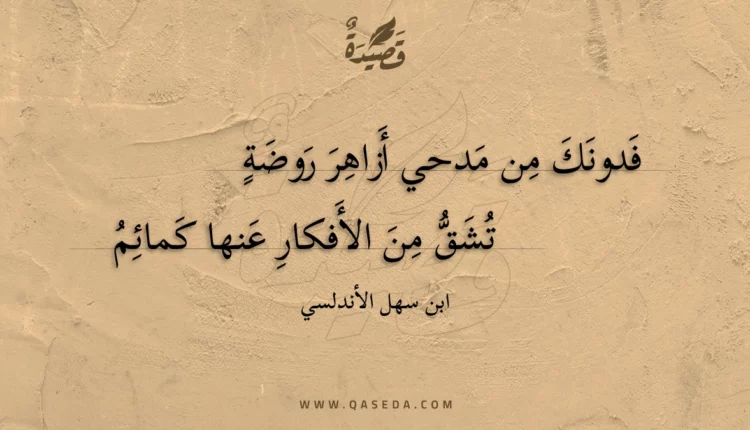 قَصِيدَةٌ
فَدونَكَ مِن مَدحي أَزاهِرَ رَوضَةٍ
تُشَقُّ مِنَ الأَفكارِ عَنها كَمائِمُ
ابن سهل الأندلسي
WWW.QASEDA.COM